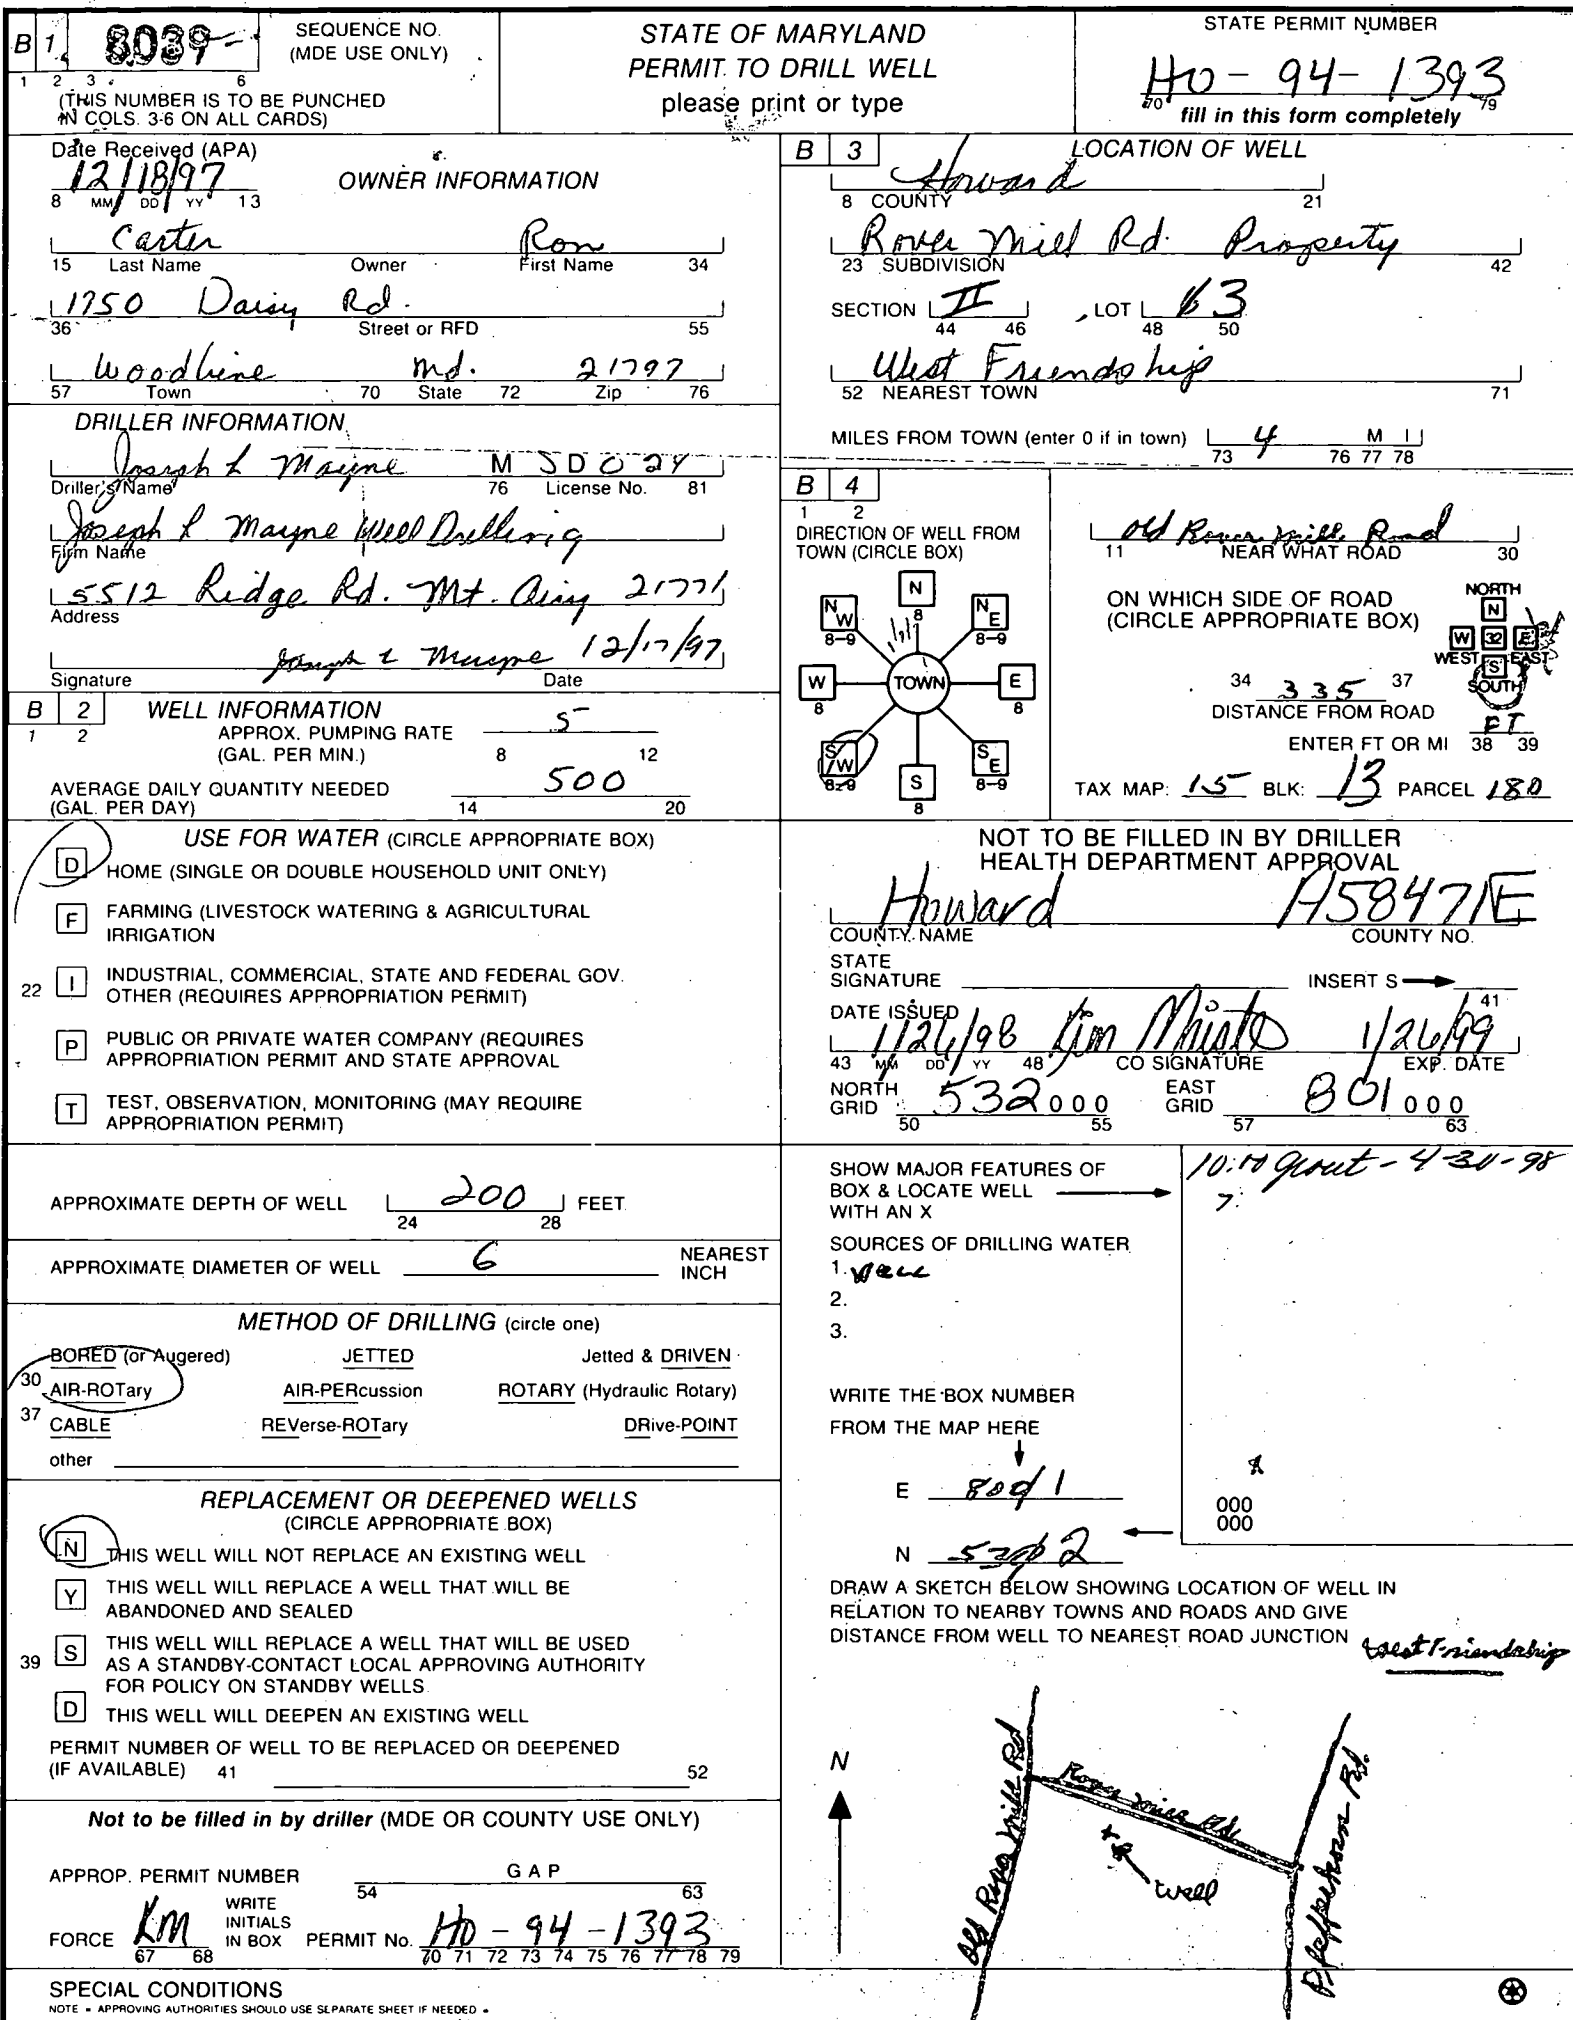 B 1 8039 SEQUENCE NO. (MDE USE ONLY)
1 2 3 6
(THIS NUMBER IS TO BE PUNCHED
IN COLS. 3-6 ON ALL CARDS)
STATE OF MARYLAND
PERMIT TO DRILL WELL
please print or type
STATE PERMIT NUMBER
HO - 94 - 1393
70 79
fill in this form completely
Date Received (APA)
12/18/97
8 MM DD YY 13
OWNER INFORMATION
Carter Ron
15 Last Name Owner First Name 34
1750 Daisy Rd.
36 Street or RFD 55
Woodbine Md. 21797
57 Town 70 State 72 Zip 76
DRILLER INFORMATION
Joseph L Mayne M S D 0 24
Driller's Name 76 License No. 81
Joseph L Mayne Well Drilling
Firm Name
5512 Ridge Rd. Mt. Airy 21771
Address
Joseph L Mayne 12/17/97
Signature Date
B 2 WELL INFORMATION
1 2
APPROX. PUMPING RATE 5
(GAL. PER MIN.) 8 12
AVERAGE DAILY QUANTITY NEEDED 500
(GAL. PER DAY) 14 20
USE FOR WATER (CIRCLE APPROPRIATE BOX)
D HOME (SINGLE OR DOUBLE HOUSEHOLD UNIT ONLY)
F FARMING (LIVESTOCK WATERING & AGRICULTURAL
IRRIGATION
22 I INDUSTRIAL, COMMERCIAL, STATE AND FEDERAL GOV.
OTHER (REQUIRES APPROPRIATION PERMIT)
P PUBLIC OR PRIVATE WATER COMPANY (REQUIRES
APPROPRIATION PERMIT AND STATE APPROVAL
T TEST, OBSERVATION, MONITORING (MAY REQUIRE
APPROPRIATION PERMIT)
APPROXIMATE DEPTH OF WELL 200 FEET
24 28
APPROXIMATE DIAMETER OF WELL 6 NEAREST
INCH
METHOD OF DRILLING (circle one)
BORED (or Augered) JETTED Jetted & DRIVEN
30 AIR-ROTary AIR-PERcussion ROTARY (Hydraulic Rotary)
37 CABLE REVerse-ROTary DRive-POINT
other
REPLACEMENT OR DEEPENED WELLS
(CIRCLE APPROPRIATE BOX)
N THIS WELL WILL NOT REPLACE AN EXISTING WELL
Y THIS WELL WILL REPLACE A WELL THAT WILL BE
ABANDONED AND SEALED
39 S THIS WELL WILL REPLACE A WELL THAT WILL BE USED
AS A STANDBY-CONTACT LOCAL APPROVING AUTHORITY
FOR POLICY ON STANDBY WELLS
D THIS WELL WILL DEEPEN AN EXISTING WELL
PERMIT NUMBER OF WELL TO BE REPLACED OR DEEPENED
(IF AVAILABLE) 41 52
Not to be filled in by driller (MDE OR COUNTY USE ONLY)
APPROP. PERMIT NUMBER G A P
54 63
FORCE KM WRITE INITIALS IN BOX PERMIT No. HO - 94 - 1393
67 68 70 71 72 73 74 75 76 77 78 79
SPECIAL CONDITIONS
NOTE - APPROVING AUTHORITIES SHOULD USE SEPARATE SHEET IF NEEDED -
B 3 LOCATION OF WELL
Howard
8 COUNTY 21
Rover Mill Rd. Property
23 SUBDIVISION 42
SECTION II LOT 63
44 46 48 50
West Friendship
52 NEAREST TOWN 71
MILES FROM TOWN (enter 0 if in town) 4 M I
73 76 77 78
B 4
1 2
DIRECTION OF WELL FROM
TOWN (CIRCLE BOX)
N 8
NW 8-9
NE 8-9
W 8
TOWN
E 8
SW 8-9
S 8
SE 8-9
Old Rover Mill Road
11 NEAR WHAT ROAD 30
ON WHICH SIDE OF ROAD
(CIRCLE APPROPRIATE BOX)
NORTH
N
W 32 E
WEST S EAST
SOUTH
34 335 37
DISTANCE FROM ROAD
ENTER FT OR MI FT
38 39
TAX MAP: 15 BLK: 13 PARCEL 180
NOT TO BE FILLED IN BY DRILLER
HEALTH DEPARTMENT APPROVAL
Howard A58471E
COUNTY NAME COUNTY NO.
STATE
SIGNATURE INSERT S
41
DATE ISSUED
1/26/98 Kim 1/26/99
43 MM DD YY 48 CO SIGNATURE EXP. DATE
NORTH GRID 532 000 EAST GRID 801 000
50 55 57 63
SHOW MAJOR FEATURES OF
BOX & LOCATE WELL
WITH AN X
10:00 grout - 4-30-98
SOURCES OF DRILLING WATER
1. well
2.
3.
WRITE THE BOX NUMBER
FROM THE MAP HERE
E 801
N 532
000
000
DRAW A SKETCH BELOW SHOWING LOCATION OF WELL IN
RELATION TO NEARBY TOWNS AND ROADS AND GIVE
DISTANCE FROM WELL TO NEAREST ROAD JUNCTION
West Friendship
N
Old Rover Mill Rd
Rover Mill Rd.
well
Pfefferkorn Rd.